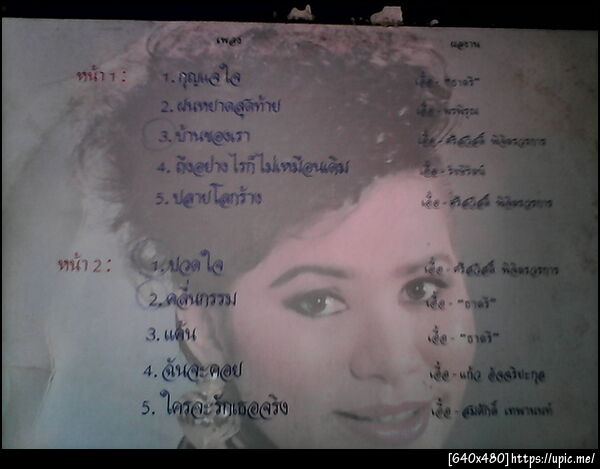 เพลง ผลงาน
หน้า 1: 1. กุญแจใจ เอื้อ - "ธาตรี"
2. ฝนหยาดสุดท้าย เอื้อ - พรพิรุณ
3. บ้านของเรา เอื้อ - ศรีสวัสดิ์ พิจิตรวรการ
4. ถึงอย่างไรก็ไม่เหมือนเดิม เอื้อ -
5. ปลายโลกร้าง เอื้อ - ศรีสวัสดิ์ พิจิตรวรการ
หน้า 2: 1. ปวดใจ เอื้อ - ศรีสวัสดิ์ พิจิตรวรการ
2. คลื่นกรรม เอื้อ - "ธาตรี"
3. แค้น เอื้อ - "ธาตรี"
4. ฉันจะคอย เอื้อ - แก้ว อัจฉริยะกุล
5. ใครจะรักเธอจริง เอื้อ - สมศักดิ์ เทพานนท์
[640x480]https://upic.me/